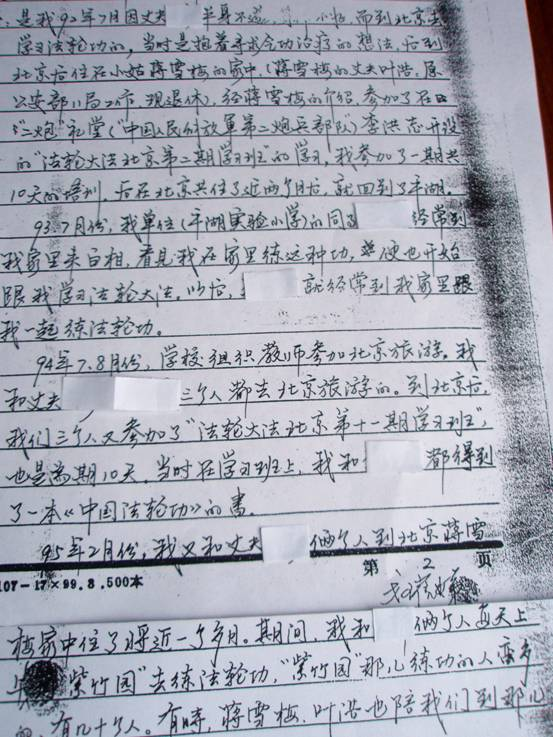 是我92年7月因丈夫 半身不遂 小姑 而到北京去
学习法轮功的,当时是抱着寻求气功治疗的想法,后到
北京后住在小姑蒋雪梅的家中,(蒋雪梅的丈夫叶浩,原
公安部11局工作,现退休),经蒋雪梅的介绍,参加了在由
“二炮”礼堂(“中国人民解放軍第二炮兵部队)李洪志开设
的“法轮大法北京第二期学习班”的学习,我参加了一期共
10天的培训,后在北京共住了近两个月后,就回到了平湖。
93.7月份,我单位(平湖实验小学)的同 经常到
我家里来白相,看见我在家里练这种功,便也开始
跟我学习法轮大法。以后, 就经常到我家里跟
我一起练法轮功。
94年7.8月份,学校组织教师参加北京旅游。我
和丈夫 三个人都去北京旅游的。到北京后,
我们三个人又参加了“法轮大法北京第十一期学习班”,
也是为期10天。当时在学习班上,我和 都得到
了一本《中国法轮功》的書。
95年2月份,我又和丈夫 俩个人到北京蒋雪
第 2 页
107-17×99.8.500本
梅家中住了将近一个多月。期间,我和 俩个人每天上
“紫竹园”去练法轮功,“紫竹园”那儿练功的人蛮多
的,有几十个人。有時,蒋雪梅、叶浩也陪我们到那儿